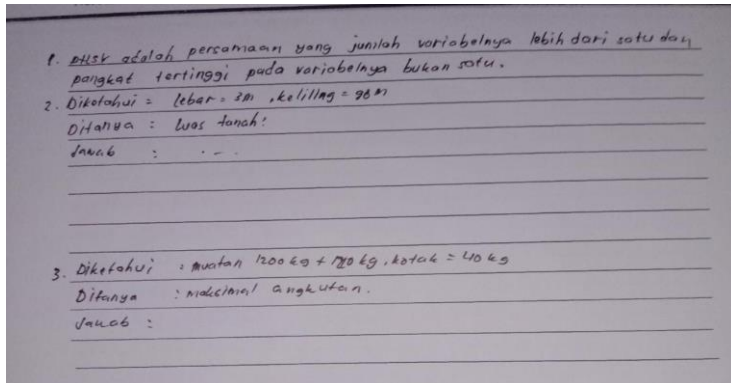 1. PtLSV adalah persamaan yang jumlah variabelnya lebih dari satu dan
pangkat tertinggi pada variabelnya bukan satu.
2. Diketahui = lebar = 3m , keliling = 98 m
Ditanya : Luas tanah!
Jawab : ...
3. Diketahui : muatan 1200 kg + kg, kotak = 40 kg
Ditanya : maksimal angkutan.
Jawab :